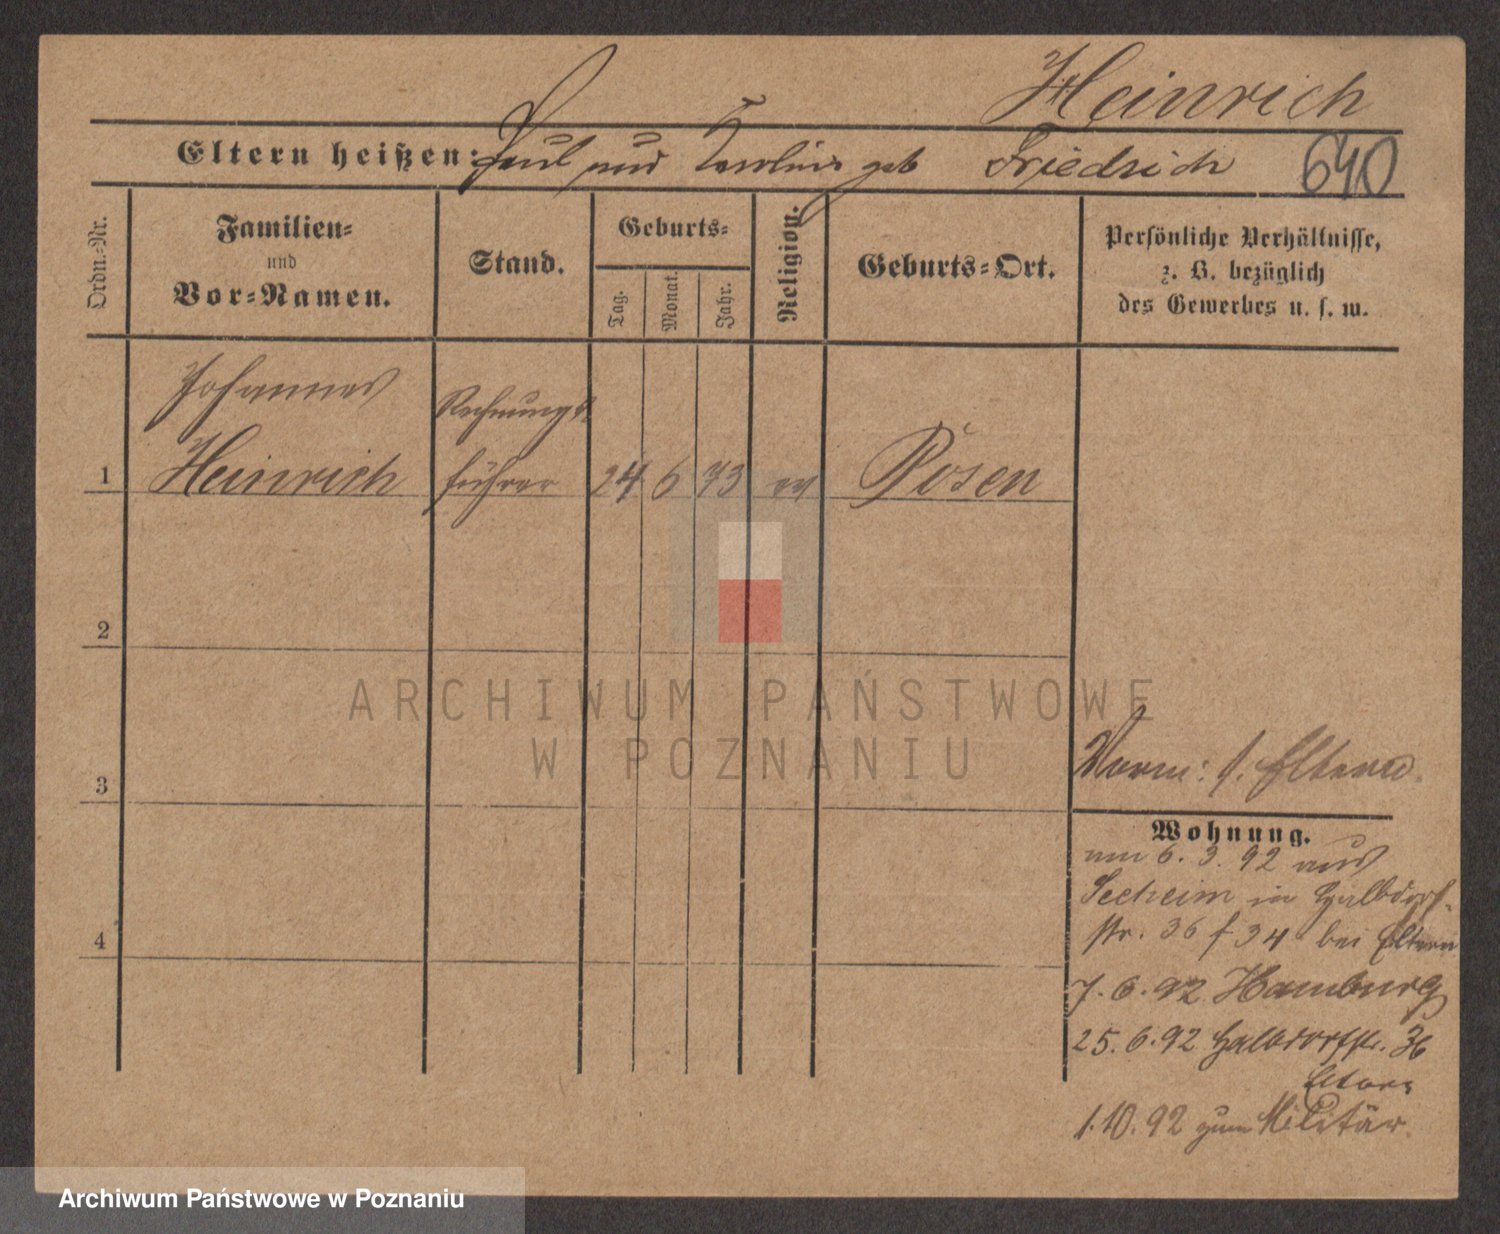 Heinrich
Eltern heißen: Paul und Karoline geb Friedrich 640
Ordn.-Nr.
Familien-
und
Vor-Namen.
Stand.
Geburts-
Tag.
Monat.
Jahr.
Religion.
Geburts-Ort.
Persönliche Verhältnisse,
z. B. bezüglich
des Gewerbes u. s. w.
Johannes
Rechnungs-
1 Heinrich führer 24 6 73 ev Posen
2
3
4
Vorm: s. Eltern
Wohnung.
am 6. 3. 92 aus
Seeheim in Halbdorf-
str. 36 f 34 bei Eltern
7. 6. 92 Hamburg
25. 6. 92 Halbdorfstr. 36
Eltern
1. 10. 92 zum Militär.
ARCHIWUM PAŃSTWOWE
W POZNANIU
Archiwum Państwowe w Poznaniu